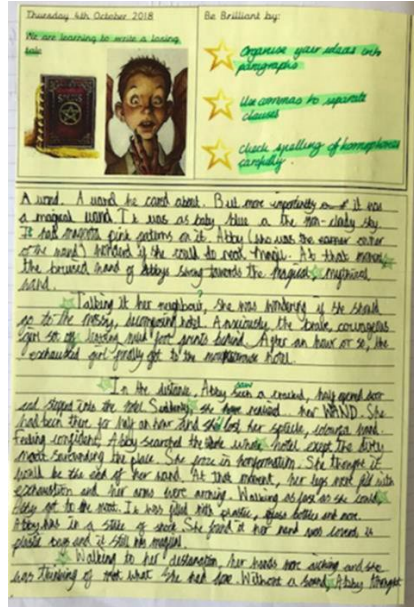 Thursday 4th October 2018
We are learning to write a losing
tale
Be Brilliant by:
Organise your ideas into
paragraphs
Use commas to separate
clauses
Check spelling of homophones
carefully.
A wand. A wand he cared about. But more importantly it was
a magical wand. It was as baby blue as the non-cloudy sky.
It had magenta pink patterns on it. Abby (she was the owner
of the wand) wondered if she could do real magic. At that moment
the bruised hand of Abbys swung towards the magical, mythical
wand.
Talking it her neighbour, she was wondering if she should
go to the messy, decomposing hotel. Anxiously the brave, courageous
girl set off leaving mud foot prints behind. After an hour or so, the
exhausted girl finally got to the hotel.
In the distance, Abby seen a creaked, half opend door
and steped into the hotel. Suddenly, she have realised her WAND. She
had been there for half an hour and she lost her special, colourful wand.
Feeling confident, Abby searched the whole hotel except the dirty
moat surrounding the place. She froze in She thought it
would be the end of her wand. At that moment, her legs filled with
exhaustion and her arms were aching. Walking as fast as she could,
Abby got to the moat. It was filled with plastic, glass bottles and more.
Abby was in a state of shock. She found it her wand was covered in
plastic bags and it still was magical
Walking to her destination, her hands were aching and she
was thinking of what she had Without a sound, Abby thought